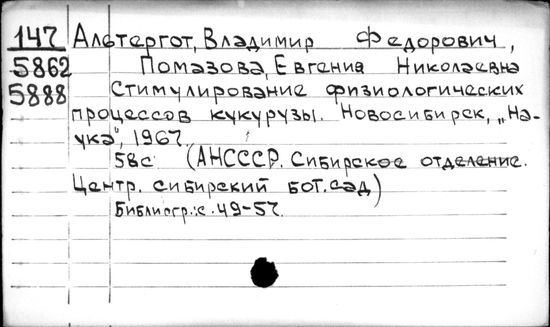 147 Альтергот, Владимир Федорович,
5862 Помазова, Евгения Николаевна
5888 Стимулирование физиологических
процессов кукурузы. Новосибирск, „На-
ука", 1967.
58с (АНСССР. Сибирское отделение.
Центр. сибирский бот. сад)
Библиогр.: с. 49-57.